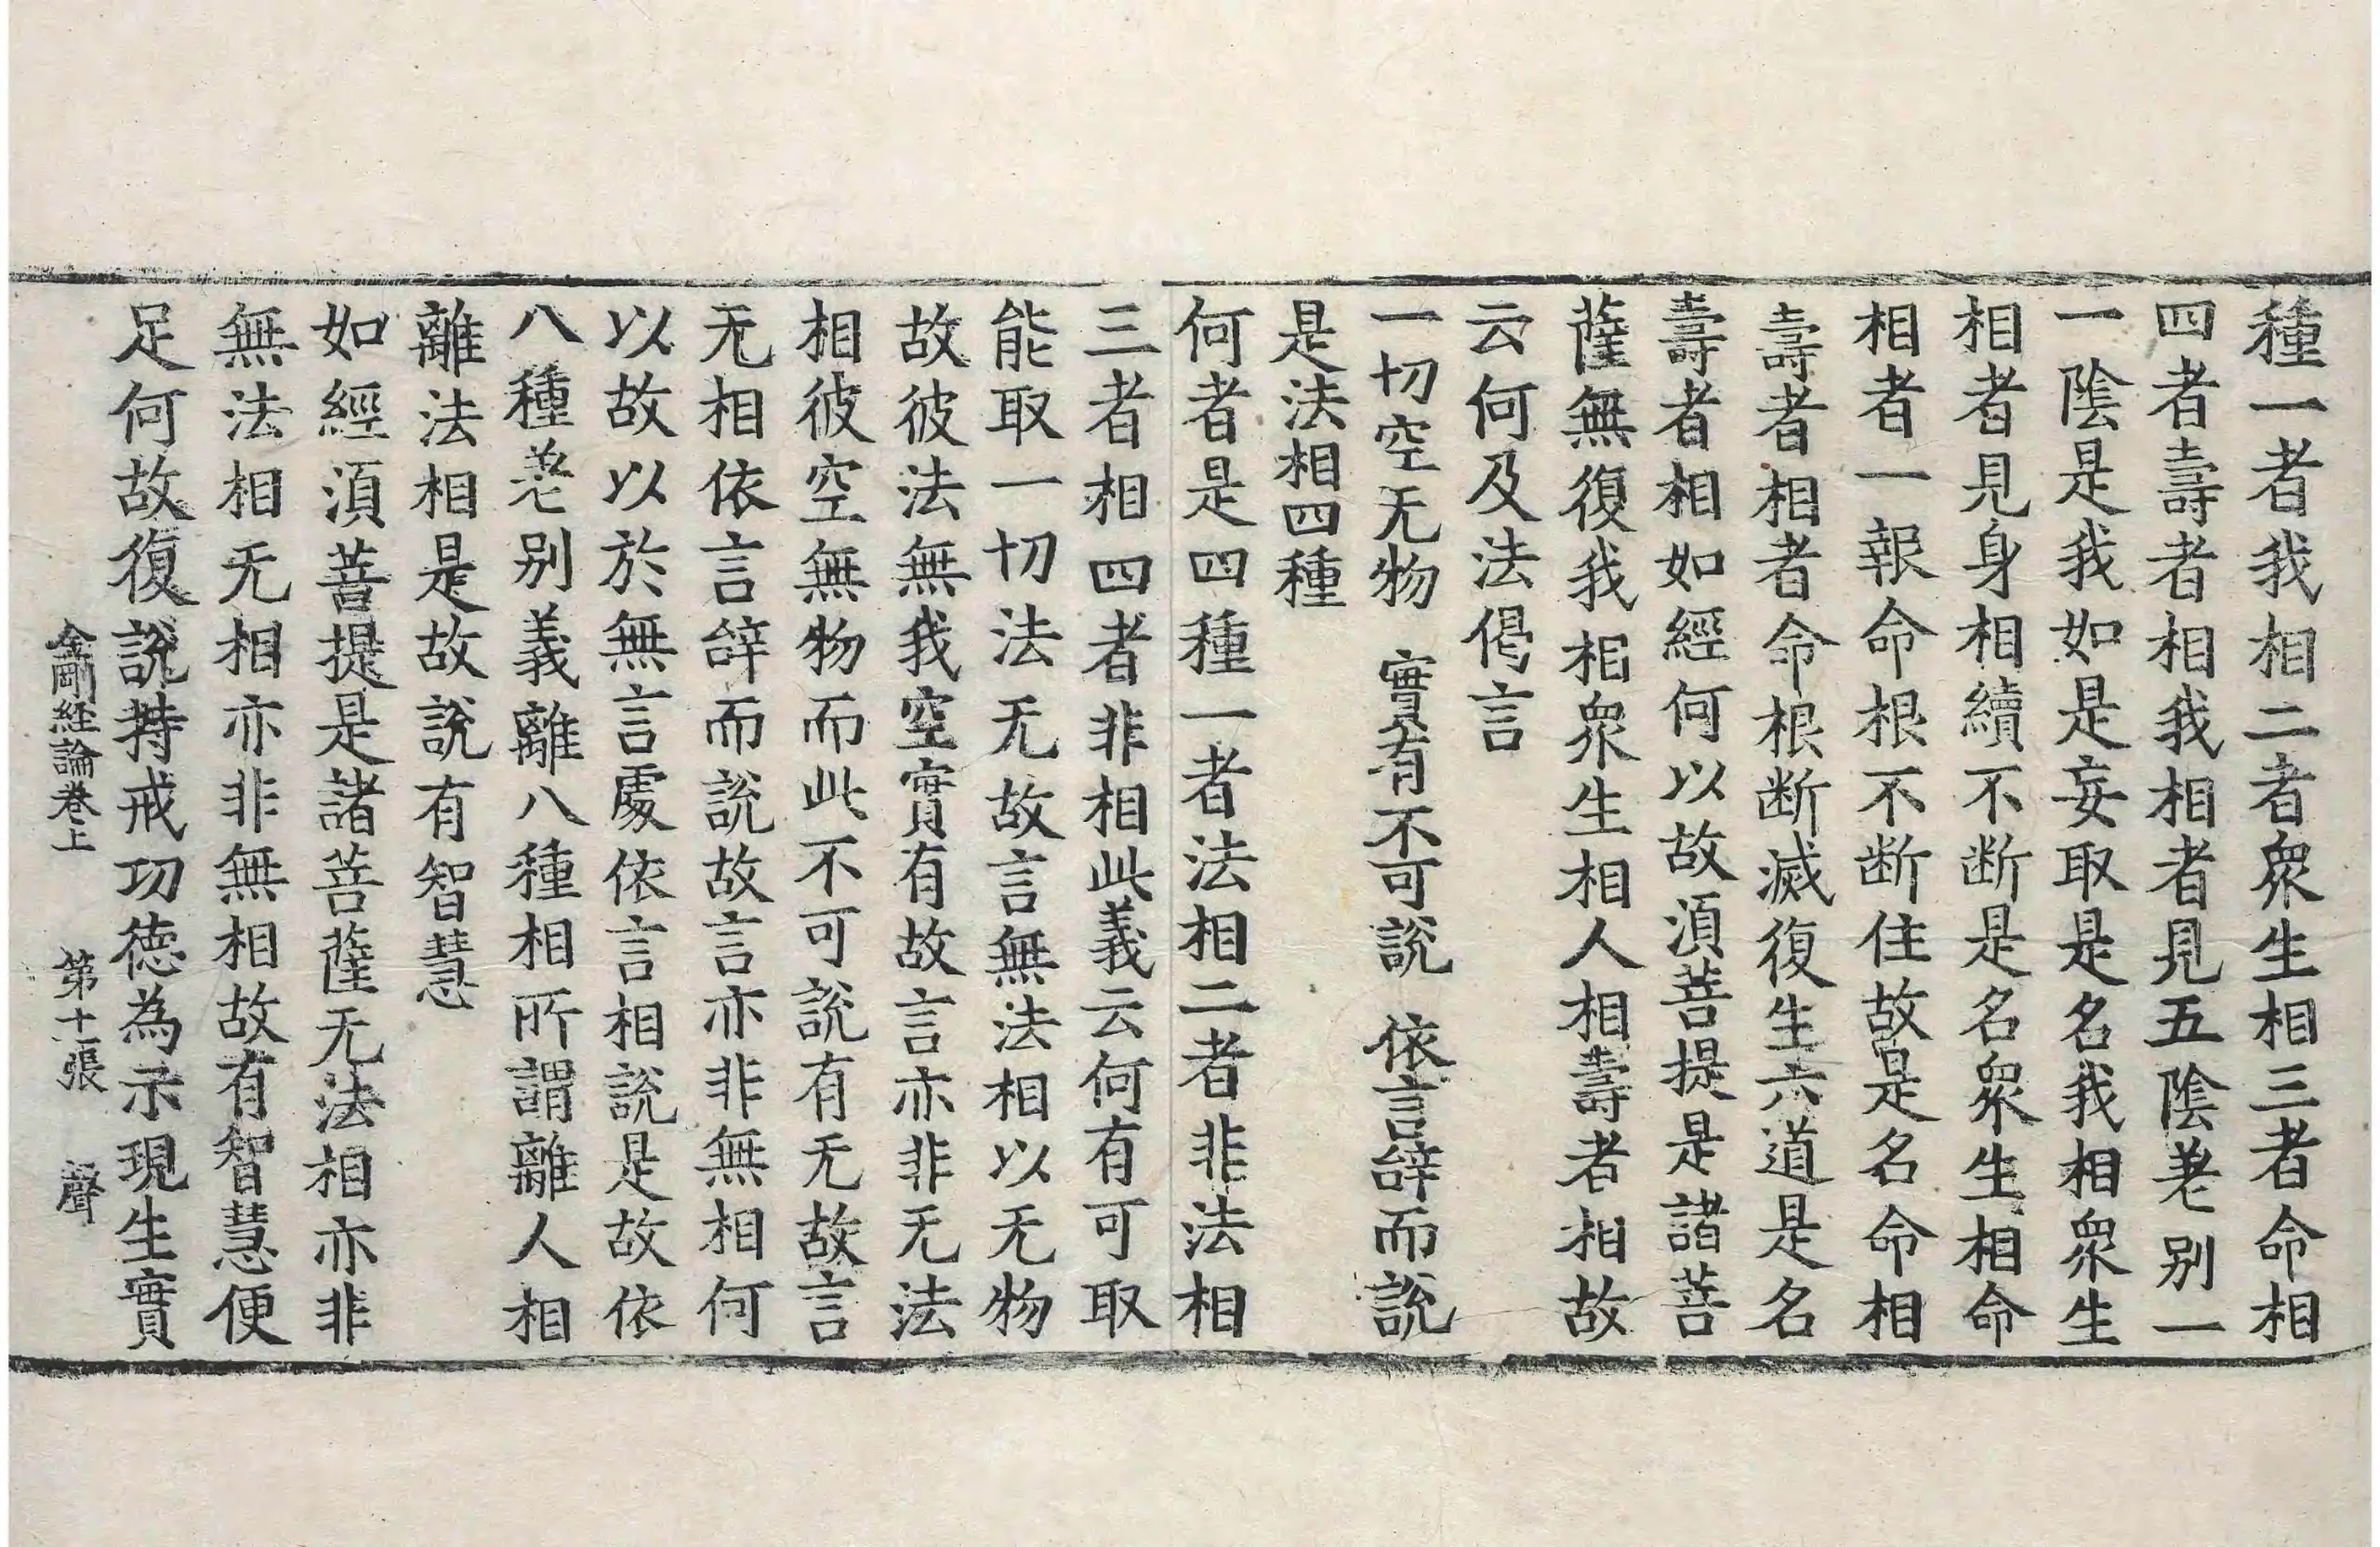 種一者我相二者衆生相三者命相
四者壽者相我相者見五陰差别一
一陰是我如是妄取是名我相衆生
相者見身相續不断是名衆生相命
相者一報命根不断住故是名命相
壽者相者命根断滅復生六道是名
壽者相如經何以故湏菩提是諸菩
薩無復我相衆生相人相壽者相故
云何及法偈言
一切空无物　實有不可說　依言辝而說
是法相四種
何者是四種一者法相二者非法相
三者相四者非相此義云何有可取
能取一切法无故言無法相以无物
故彼法無我空實有故言亦非无法
相彼空無物而此不可說有无故言
无相依言辝而說故言亦非無相何
以故以於無言處依言相說是故依
八種差别義離八種相所謂離人相
離法相是故說有智慧
如經湏菩提是諸菩薩无法相亦非
無法相无相亦非無相故有智慧便
足何故復說持戒功德為示現生實
金剛經論卷上　第十一張　聲